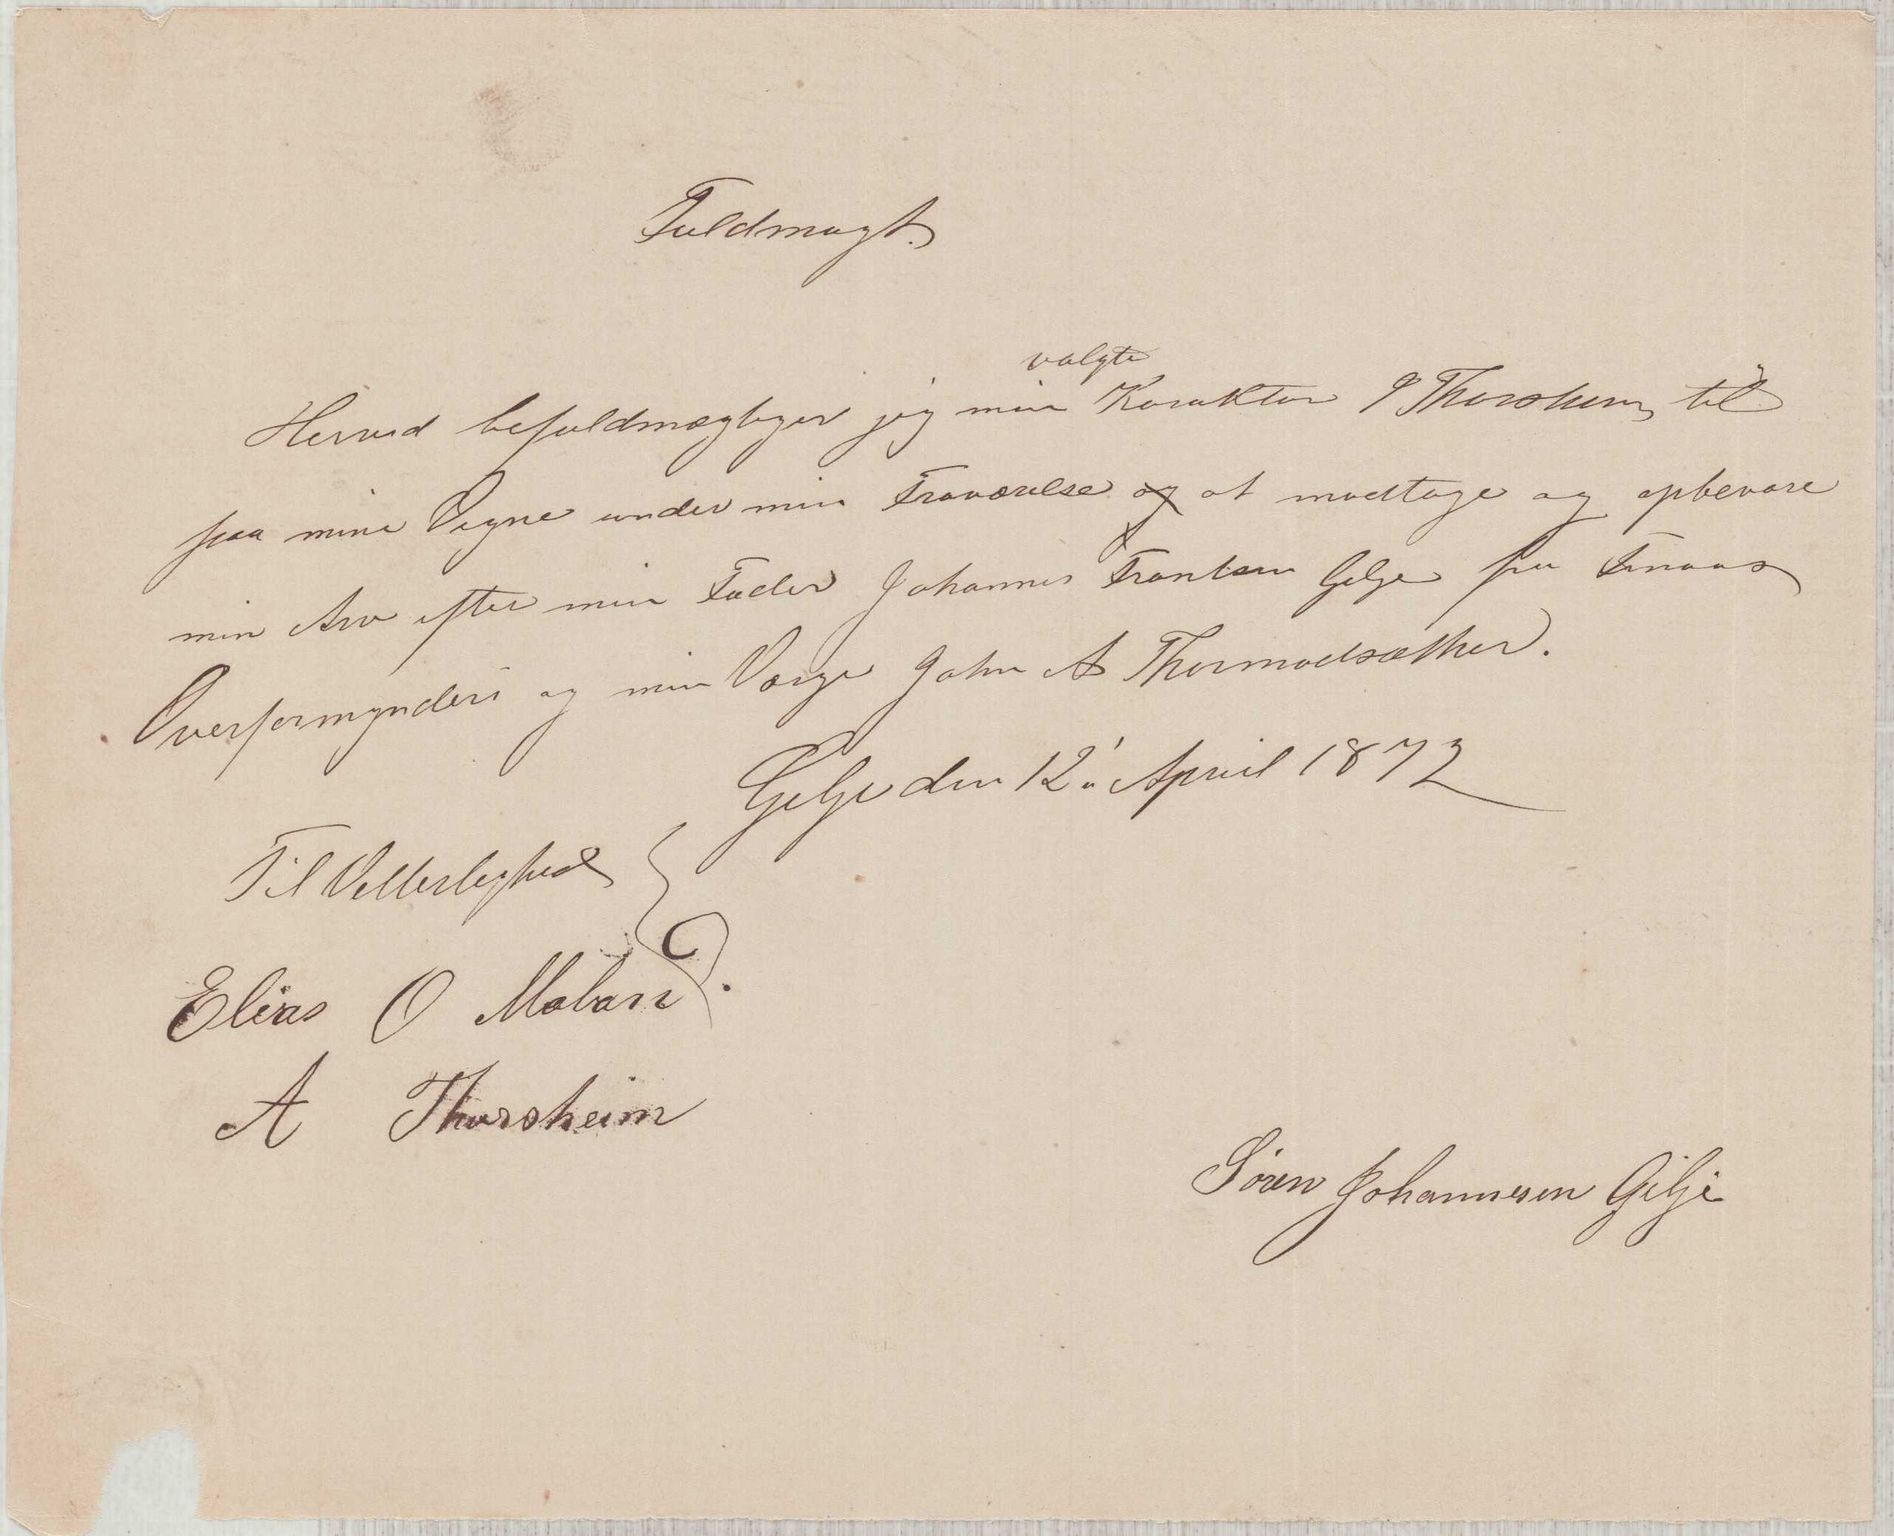 Fuldmagt.
valgte
Herved befuldmægtiger jeg min Kurator P Thorsheim til
paa mine Vegne under min Fraværelse og at modtage og opbevare
min Arv efter min Fader Johannes Frantsen Gilje fra Finaas
Overformynderi og min Værge John A Thormodsæther.
Gilje den 12' April 1872
Til Vitterlighed
Elias O
A Thorsheim
Sören Johannesen Gilje